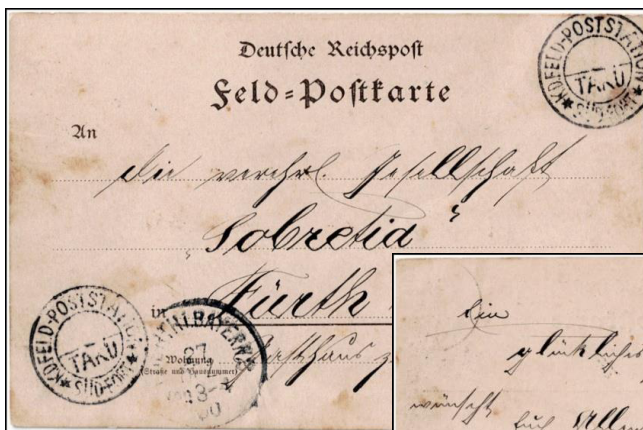 Deutsche Reichspost
Feld=Postkarte
K.D.FELD-POSTSTATION
TAKU
* SÜD-FORT *
An
die verehrl. Gesellschaft
"Sobretia"
in Fürth
K.D.FELD-POSTSTATION
TAKU
* SÜD-FORT *
Wohnung
(Straße und Hausnummer)
Ein
glückliches
wünscht
Euch Allen